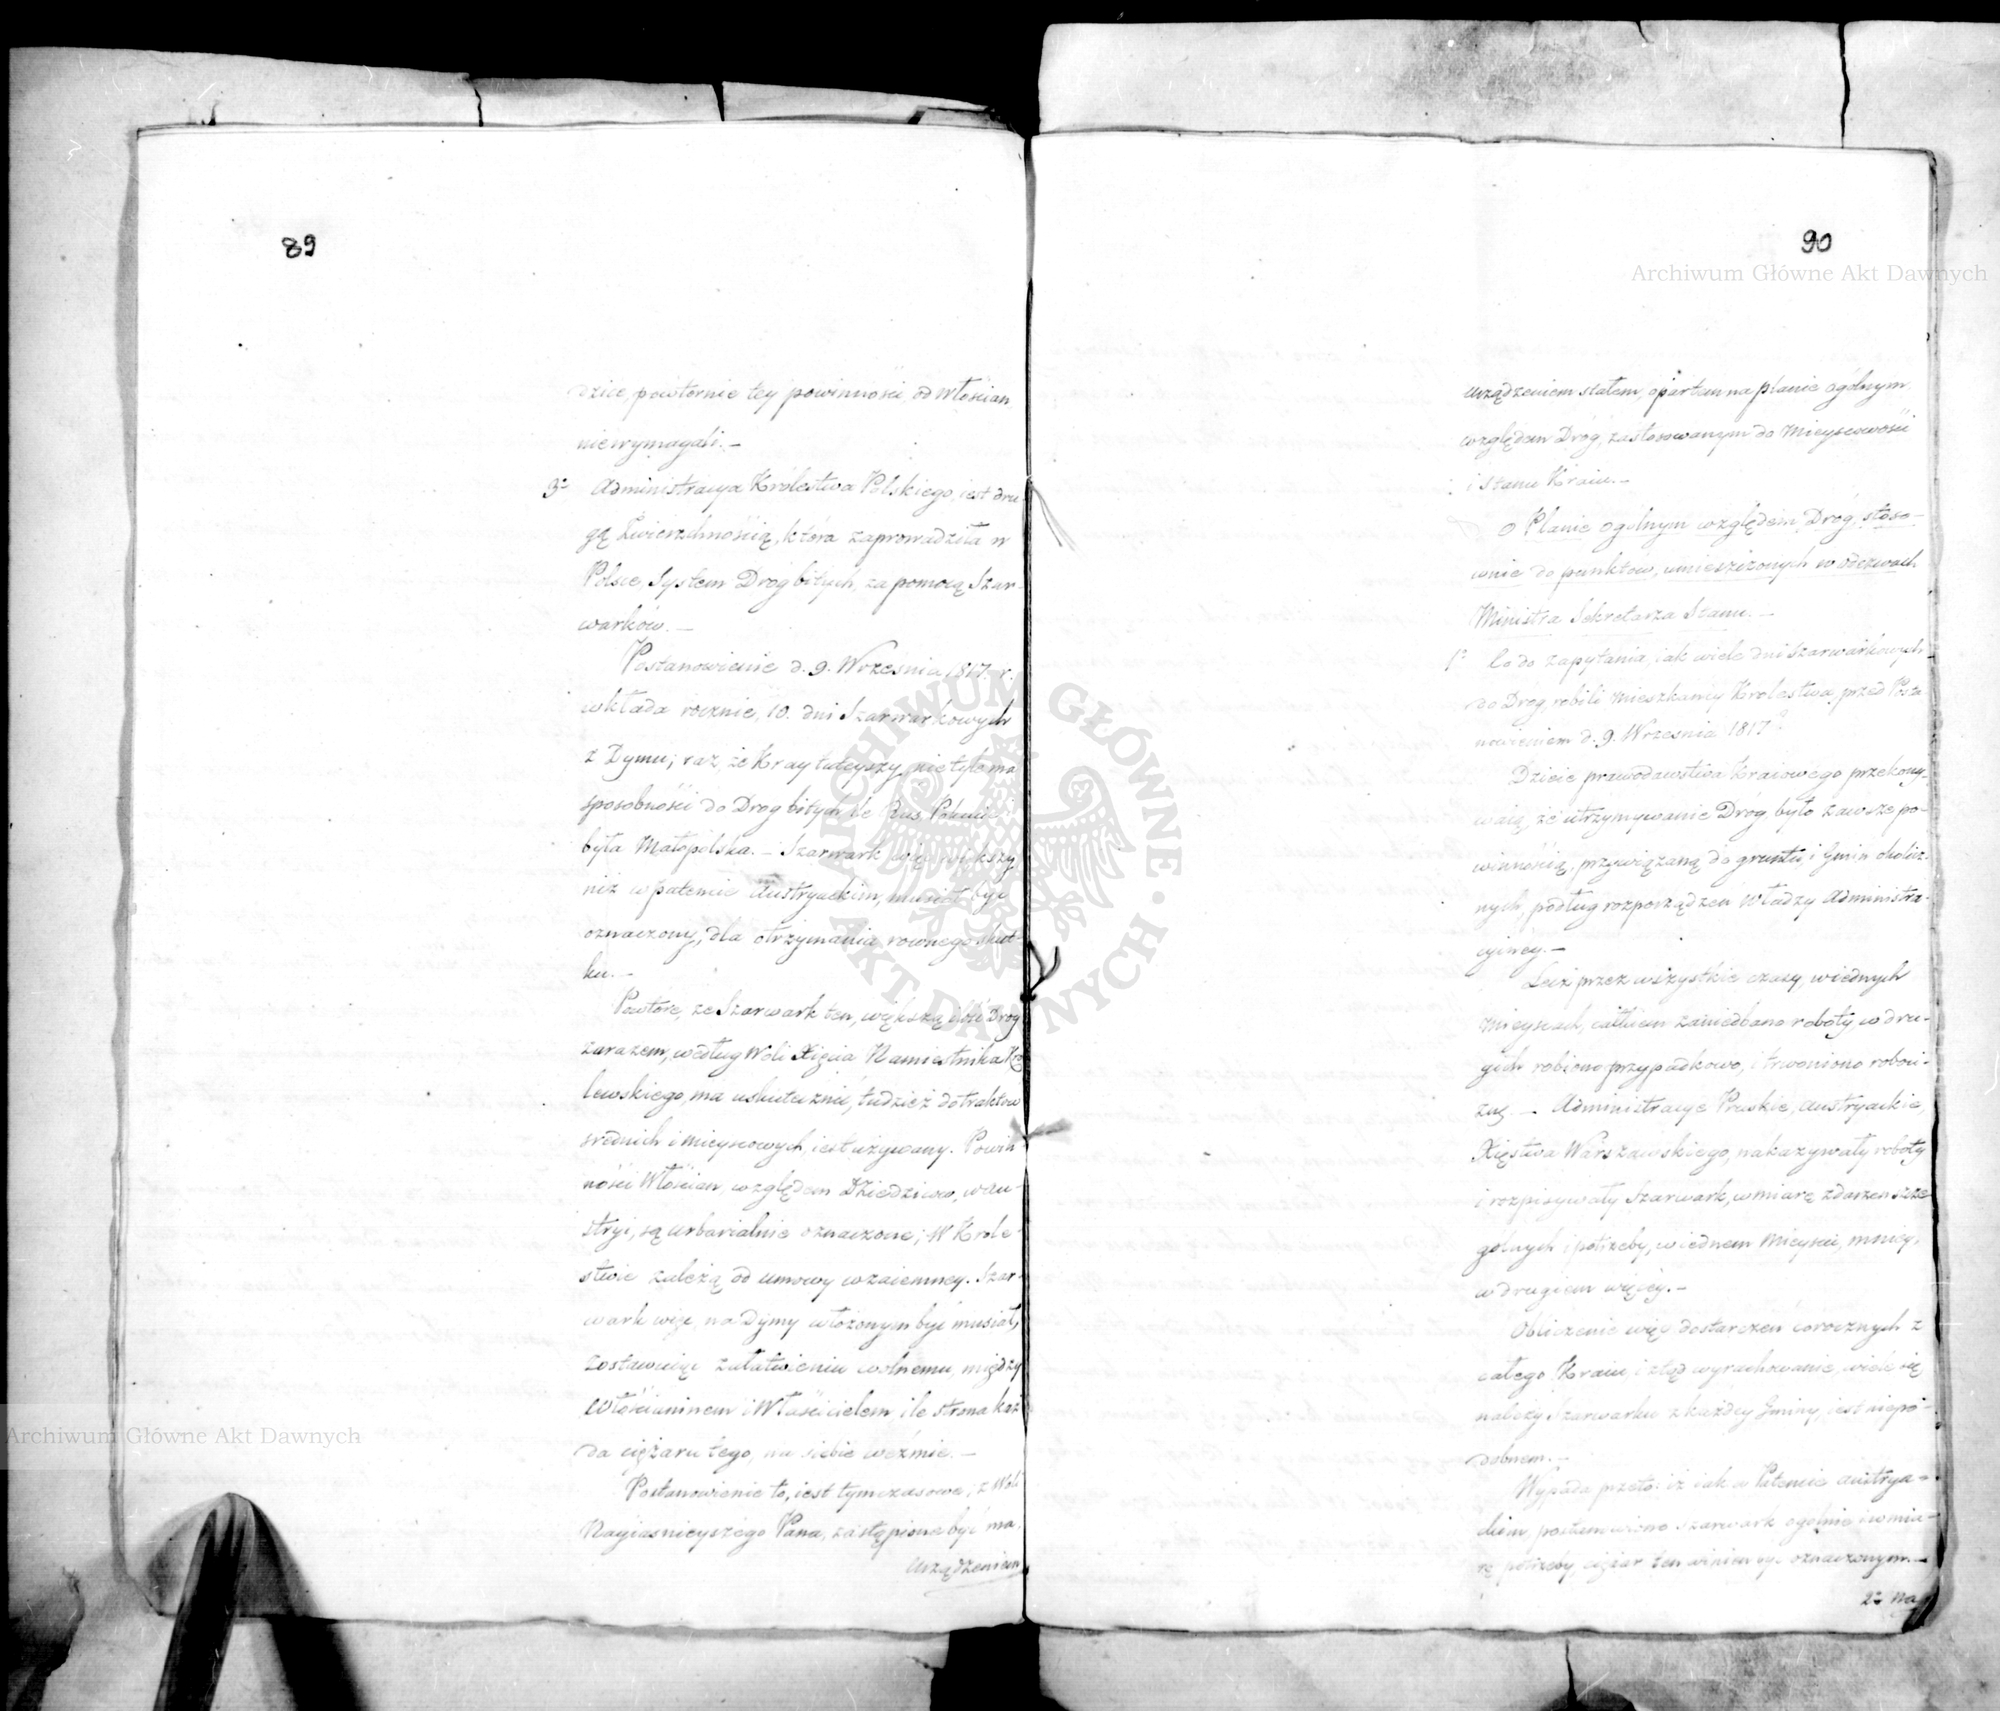 89
dzice, powtórnie tey powinności, od Włościan
niewymagali. –
3º Administracya Królestwa Polskiego, iest dru-
gą Zwierzchnością, która zaprowadziła w
Polsce, System Dróg bitych, za pomocą Szar-
warków. –
Postanowienie d. 9. Września 1817. r.
wkłada rocznie, 10. dni Szarwarkowych
z Dymu; raz, że Kray tuteyszy, nie tyle ma
sposobności do Dróg bitych, ile
była Małopolska. – Szarwark więc większy
niż w patencie Austryackim, musiał być
oznaczony, dla otrzymania równego skut-
ku. –
Powtóre, że Szarwark ten, większą ilość Dróg
zarazem, według Woli Xięcia Namiestnika Kró
lewskiego, ma uskutecznić, tudzież do traktów
średnich i mieyscowych, iest używany. Powin
ności Włościan, względem Dziedziców, w Au-
stryi, są urbarialnie oznaczone; W Króle-
stwie zależą od umowy wzaiemney. Szar-
wark więc, na Dymy włożonym być musiał,
zostawuiąc załatwieniu wolnemu, między
Włościaninem i Właścicielem, ile strona każ
da ciężaru tego, na siebie weźmie. –
Postanowienie to, iest tymczasowe; z Woli
Nayiaśnieyszego Pana, zastąpione być ma,
Urządzeniem
90
urządzeniem stałem, opartem na planie ogólnym
względem Dróg, zastosowanym do Mieyscowości
i stanu Kraiu. –
O Planie ogólnym względem Dróg, stoso-
wnie do punktów, umieszczonych w odezwach
Ministra Sekretarza Stanu. –
1º Co do zapytania, iak wiele dni Szarwarkowych
do Dróg robili mieszkańcy Królestwa, przed Posta
nowieniem d. 9. Września 1817?
Dzieie prawodawstwa Kraiowego przekony-
waią, że utrzymywanie Dróg było zawsze po-
winnością, przywiązaną do gruntu, i Gmin okolicz-
nych, podług rozporządzeń Władzy Administra-
cyiney. –
Lecz przez wszystkie czasy, w iednych
mieyscach, całkiem zaniedbano roboty, w dru-
gich robiono przypadkowo, i trwoniono roboci-
znę. – Administracye Pruskie, Austryackie,
Xięstwa Warszawskiego, nakazywały roboty
i rozpisywały Szarwark, w miarę zdarzeń szcze
gólnych i potrzeby, w iednem Mieyscu, mniey,
w drugiem więcey. –
Obliczenie więc dostarczeń corocznych z
całego Kraiu, i ztąd wyrachowanie, wiele się
należy Szarwarku z każdey Gminy, iest niepo-
dobnem. –
Wypada przeto: iż iak w Patencie Austrya-
ckim, postanowiono Szarwark ogólnie i w mia-
rę potrzeby, ciężar ten winien być oznaczonym. –
2º Na
Archiwum Główne Akt Dawnych
Archiwum Główne Akt Dawnych
ARCHIWUM GŁÓWNE AKT DAWNYCH